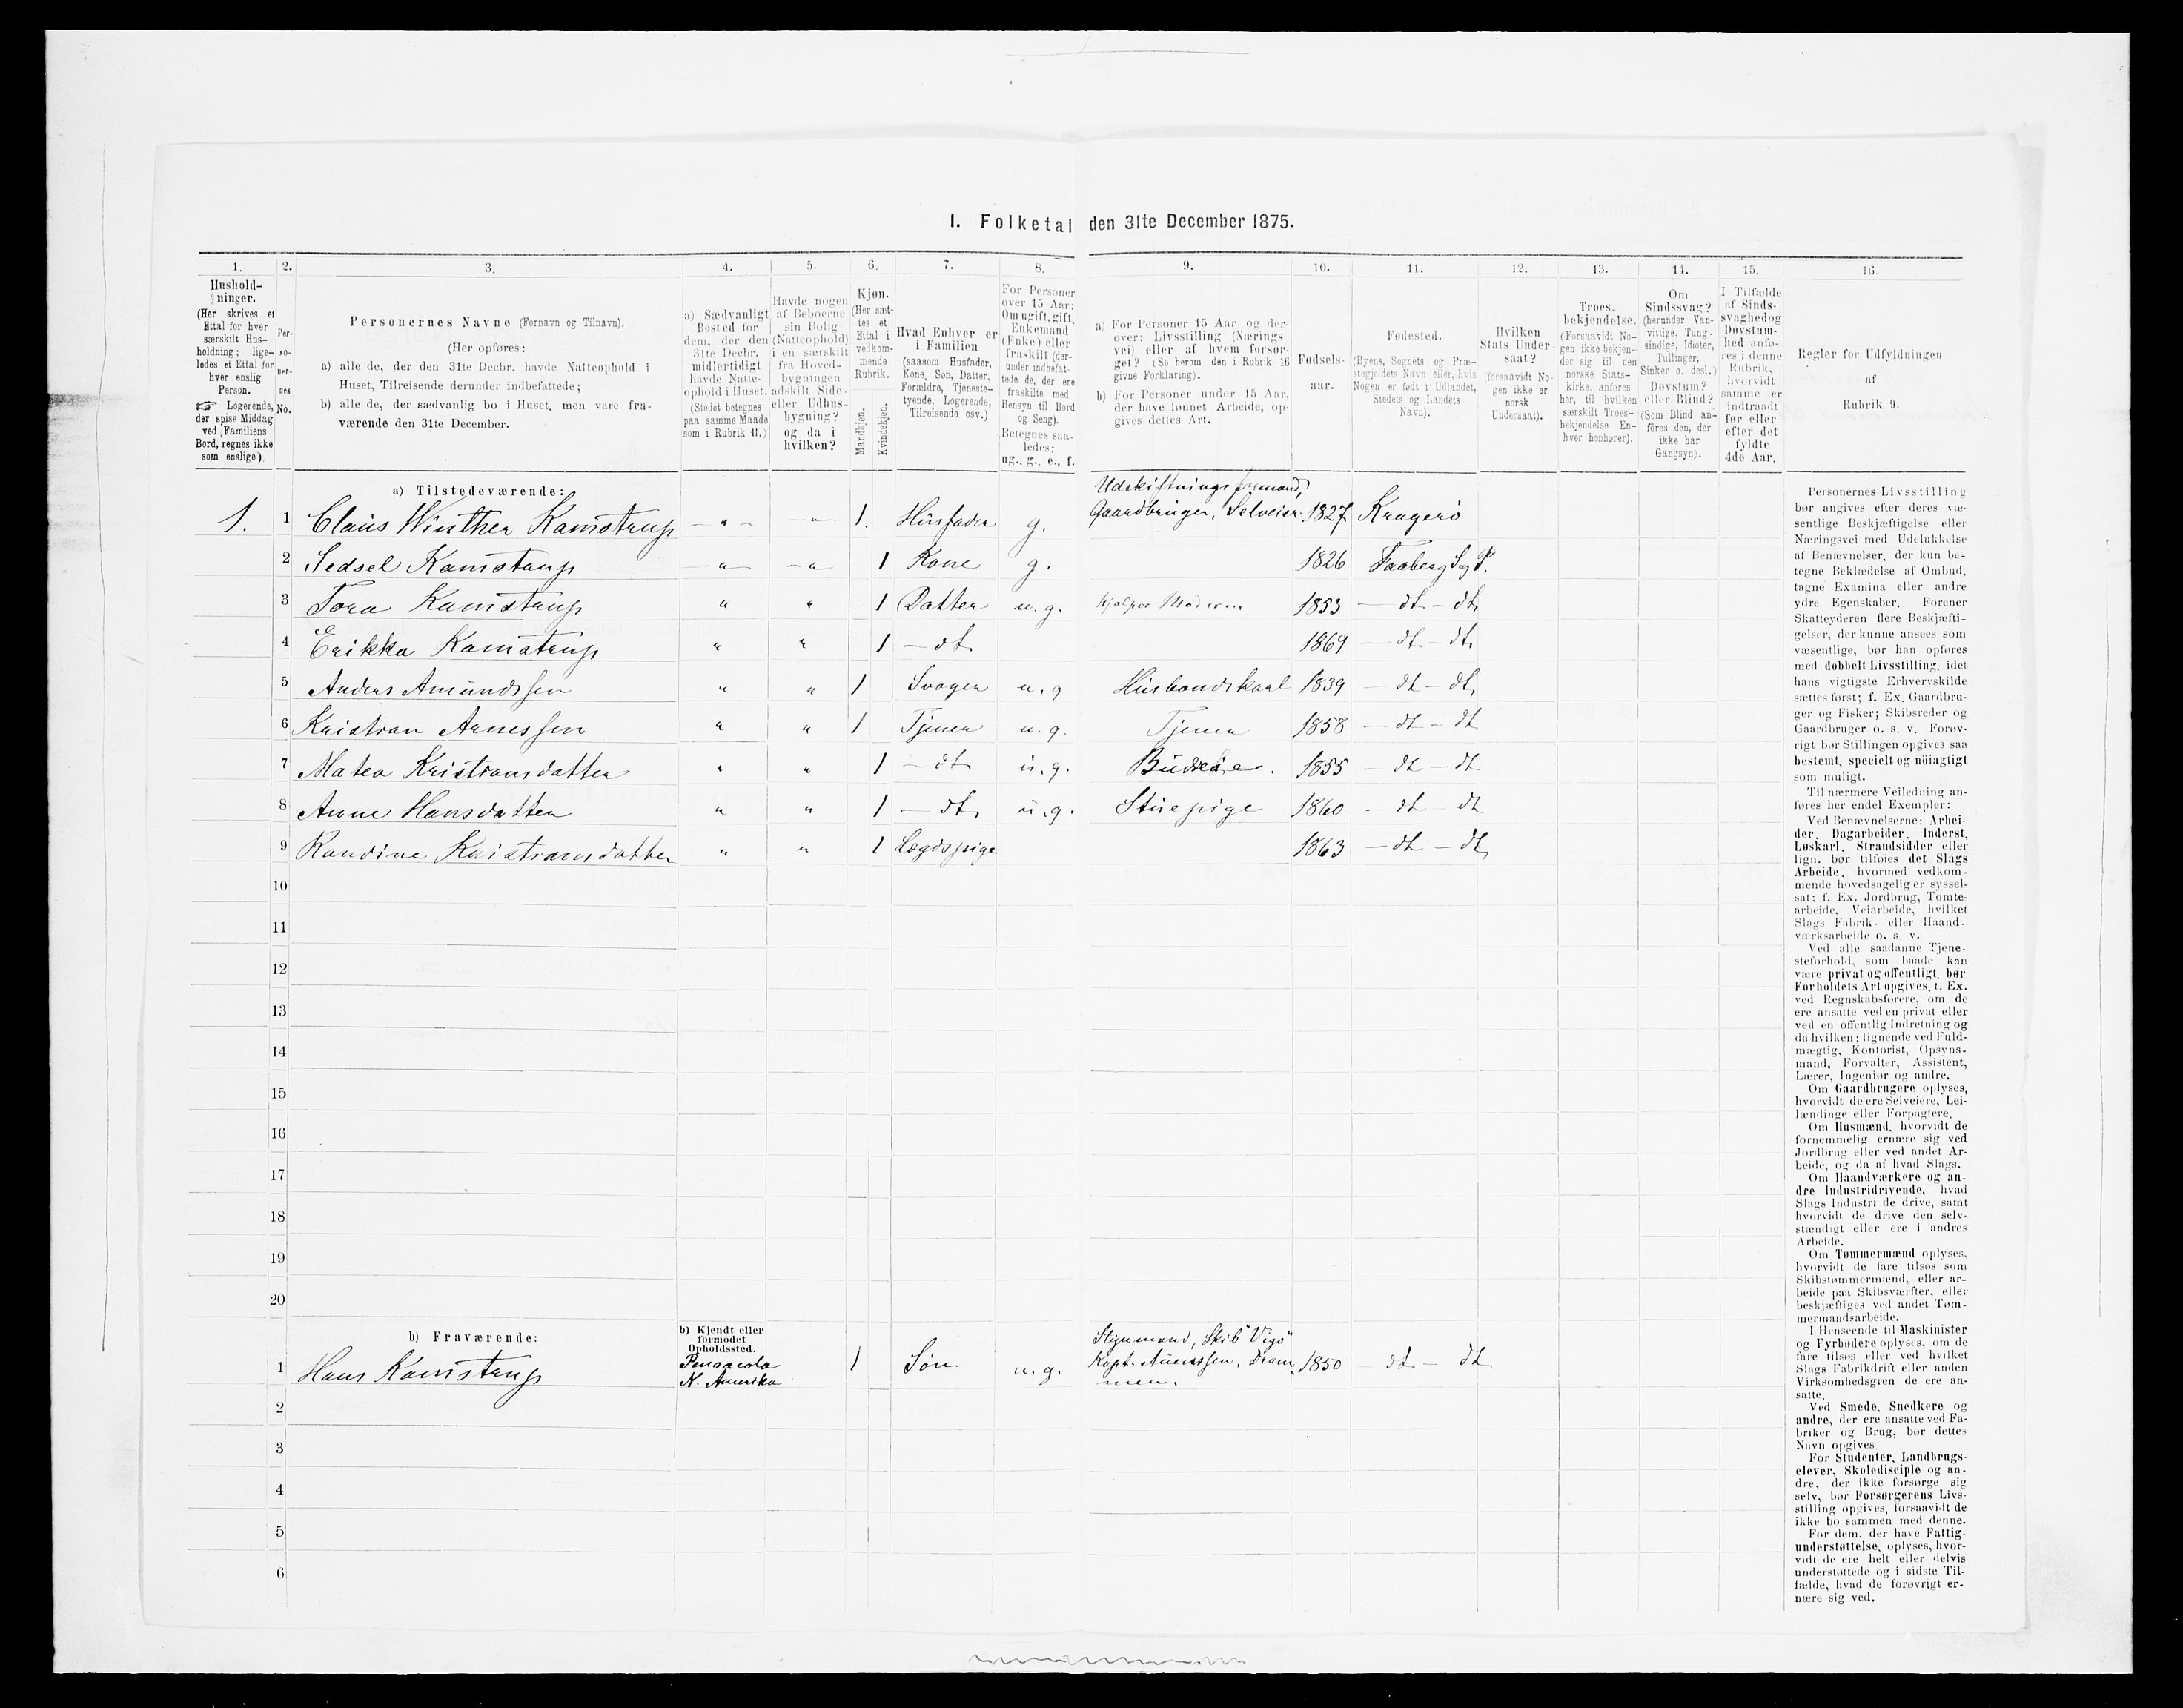 I. Folketal den 31te December 1875.
1. 2. 3. 4. 5. 6. 7. 8. 9. 10. 11. 12. 13. 14. 15. 16.
Hushold-
ninger.
(Her skrives et
Ettal for hver
særskilt Hus-
holdning; lige-
ledes et Ettal for
hver enslig
Person.
☞ Logerende,
der spise Middag
ved Familiens
Bord, regnes ikke
som enslige).
Per-
so-
ner-
nes
No.
Personernes Navne (Fornavn og Tilnavn).
(Her opføres:
a) alle de, der den 31te Decbr. havde Natteophold i
Huset, Tilreisende derunder indbefattede;
b) alle de, der sædvanlig bo i Huset, men vare fra-
værende den 31te December.
a) Sædvanligt
Bosted for
dem, der den
31te Decbr.
midlertidigt
havde Natte-
ophold i Huset.
(Stedet betegnes
paa samme Maade
som i Rubrik 11.)
Havde nogen
af Beboerne
sin Bolig
(Natteophold)
i en særskilt
fra Hoved-
bygningen
adskilt Side-
eller Udhus-
bygning?
og da i
hvilken?
Kjøn.
(Her sæt-
tes et
Ettal i
vedkom-
mende
Rubrik.
Mandkjøn.
Kvindekjøn.
Hvad Enhver er
i Familien
(saasom Husfader,
Kone, Søn, Datter,
Forældre, Tjeneste-
tyende, Logerende,
Tilreisende osv.)
For Personer
over 15 Aar:
Om ugift, gift,
Enkemand
(Enke) eller
fraskilt (der-
under indbefat-
tede de, der ere
fraskilte med
Hensyn til Bord
og Seng).
Betegnes saa-
ledes:
ug., g., e., f.
a) For Personer 15 Aar og der-
over: Livsstilling (Nærings
vei) eller af hvem forsør-
get? (Se herom den i Rubrik 16
givne Forklaring).
b) For Personer under 15 Aar,
der have lønnet Arbeide, op-
gives dettes Art.
Fødsels-
aar.
Fødested.
(Byens, Sognets og Præ-
stegjeldets Navn eller, hvis
Nogen er født i Udlandet,
Stedets og Landets
Navn).
Hvilken
Stats Under-
saat?
(forsaavidt No-
gen ikke er
norsk
Undersaat).
Troes-
bekjendelse.
(Forsaavidt No-
gen ikke bekjen-
der sig til den
norske Stats-
kirke, anføres
her, til hvilken
særskilt Troes-
bekjendelse En-
hver henhører).
Om
Sindssvag?
(herunder Van-
vittige, Tung-
sindige, Idioter,
Tullinger,
Sinker o. desl.)
Døvstum?
eller Blind?
(Som Blind an-
føres den, der
ikke har
Gangsyn).
I Tilfælde
af Sinds-
svaghed og
Døvstum-
hed anfø-
res i denne
Rubrik,
hvorvidt
samme er
indtraadt
før eller
efter det
fyldte
4de Aar.
Regler for Udfyldningen
af
Rubrik 9.
a) Tilstedeværende:
Udskiftningsformand,
1. 1 Claus Winther Kamstrup — „ — — „ — 1. Husfader g. Gaardbruger, Selveier 1827 Kragerø
2 Sedsel Kamstrup — „ — — „ 1 Kone g. 1826 Faaberg S. og P.
3 Tora Kamstrup „ „ 1 Datter u. g. hjælper Moderen 1853 — dt — dt
4 Erikka Kamstrup „ „ 1 — dt 1869 — dt — dt
5 Anders Amundssen „ „ 1 Svoger u. g Husbondskarl 1839 — dt — dt
6 Kristian Arnessen „ „ 1 Tjener u. g. Tjener 1858 — dt — dt
7 Matea Kristiansdatter „ „ 1 — dt u. g. Budeie. 1855 — dt — dt
8 Anne Hansdatter „ „ 1 — dt u. g. Stuepige 1860 — dt — dt
9 Randine Kristiansdatter „ „ 1 Lægdspige 1863 — dt — dt
10
11
12
13
14
15
16
17
18
19
20
b) Fraværende:
b) Kjendt eller
formodet
Opholdssted.
1 Hans Kamstrup Pensacola
N. Amerika 1 Søn u. g. Styrmand, Skib "Vigo"
Kapt. Dram
men. 1850 — dt — dt
2
3
4
5
6
Personernes Livsstilling
bør angives efter deres væ-
sentlige Beskjæftigelse eller
Næringsvei med Udelukkelse
af Benævnelser, der kun be-
tegne Beklædelse af Ombud,
tagne Examina eller andre
ydre Egenskaber. Forener
Skatteyderen flere Beskjæfti-
gelser, der kunne ansees som
væsentlige, bør han opføres
med dobbelt Livsstilling, idet
hans vigtigste Erhvervskilde
sættes først; f. Ex. Gaardbru-
ger og Fisker; Skibsreder og
Gaardbruger o. s. v. Forøv-
rigt bør Stillingen opgives saa
bestemt, specielt og nøiagtigt
som muligt.
Til nærmere Veiledning an-
føres her endel Exempler:
Ved Benævnelserne: Arbei-
der, Dagarbeider, Inderst,
Løskarl, Strandsidder eller
lign. bør tilføies det Slags
Arbeide, hvormed vedkom-
mende hovedsagelig er syssel-
sat; f. Ex. Jordbrug, Tomte-
arbeide, Veiarbeide, hvilket
Slags Fabrik- eller Haand-
værksarbeide o. s. v.
Ved alle saadanne Tjene-
steforhold, som baade kan
være privat og offentligt, bør
Forholdets Art opgives, t. Ex.
ved Regnskabsførere, om de
ere ansatte ved en privat eller
ved en offentlig Indretning og
da hvilken; lignende ved Fuld-
mægtig, Kontorist, Opsyns-
mand, Forvalter, Assistent,
Lærer, Ingeniør og andre.
Om Gaardbrugere oplyses,
hvorvidt de ere Selveiere, Lei-
lændinge eller Forpagtere.
Om Husmænd, hvorvidt de
fornemmelig ernære sig ved
Jordbrug eller ved andet Ar-
beide, og da af hvad Slags.
Om Haandværkere og an-
dre Industridrivende, hvad
Slags Industri de drive, samt
hvorvidt de drive den selv-
stændigt eller ere i andres
Arbeide.
Om Tømmermænd oplyses,
hvorvidt de fare tilsøs som
Skibstømmermænd, eller ar-
beide paa Skibsværfter, eller
beskjæftiges ved andet Tøm-
mermandsarbeide.
I Henseende til Maskinister
og Fyrbødere oplyses, om de
fare tilsøs eller ved hvilket
Slags Fabrikdrift eller anden
Virksomhedsgren de ere an-
satte.
Ved Smede, Snedkere og
andre, der ere ansatte ved Fa-
briker og Brug, bør dettes
Navn opgives.
For Studenter, Landbrugs-
elever, Skoledisciple og an-
dre, der ikke forsørge sig
selv, bør Forsørgerens Livs-
stilling opgives, forsaavidt de
ikke bo sammen med denne.
For dem, der have Fattig-
understøttelse, oplyses, hvor-
vidt de ere helt eller delvis
understøttede og i sidste Til-
fælde, hvad de forøvrigt er-
nære sig ved.